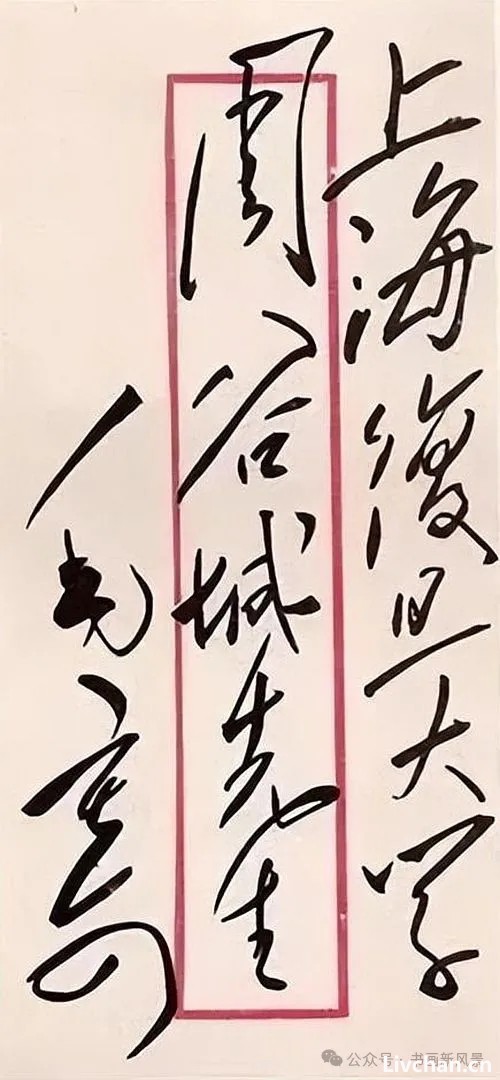 上海復旦大学
周谷城先生
寄
公众号 · 书画新风景
Livchan.cn